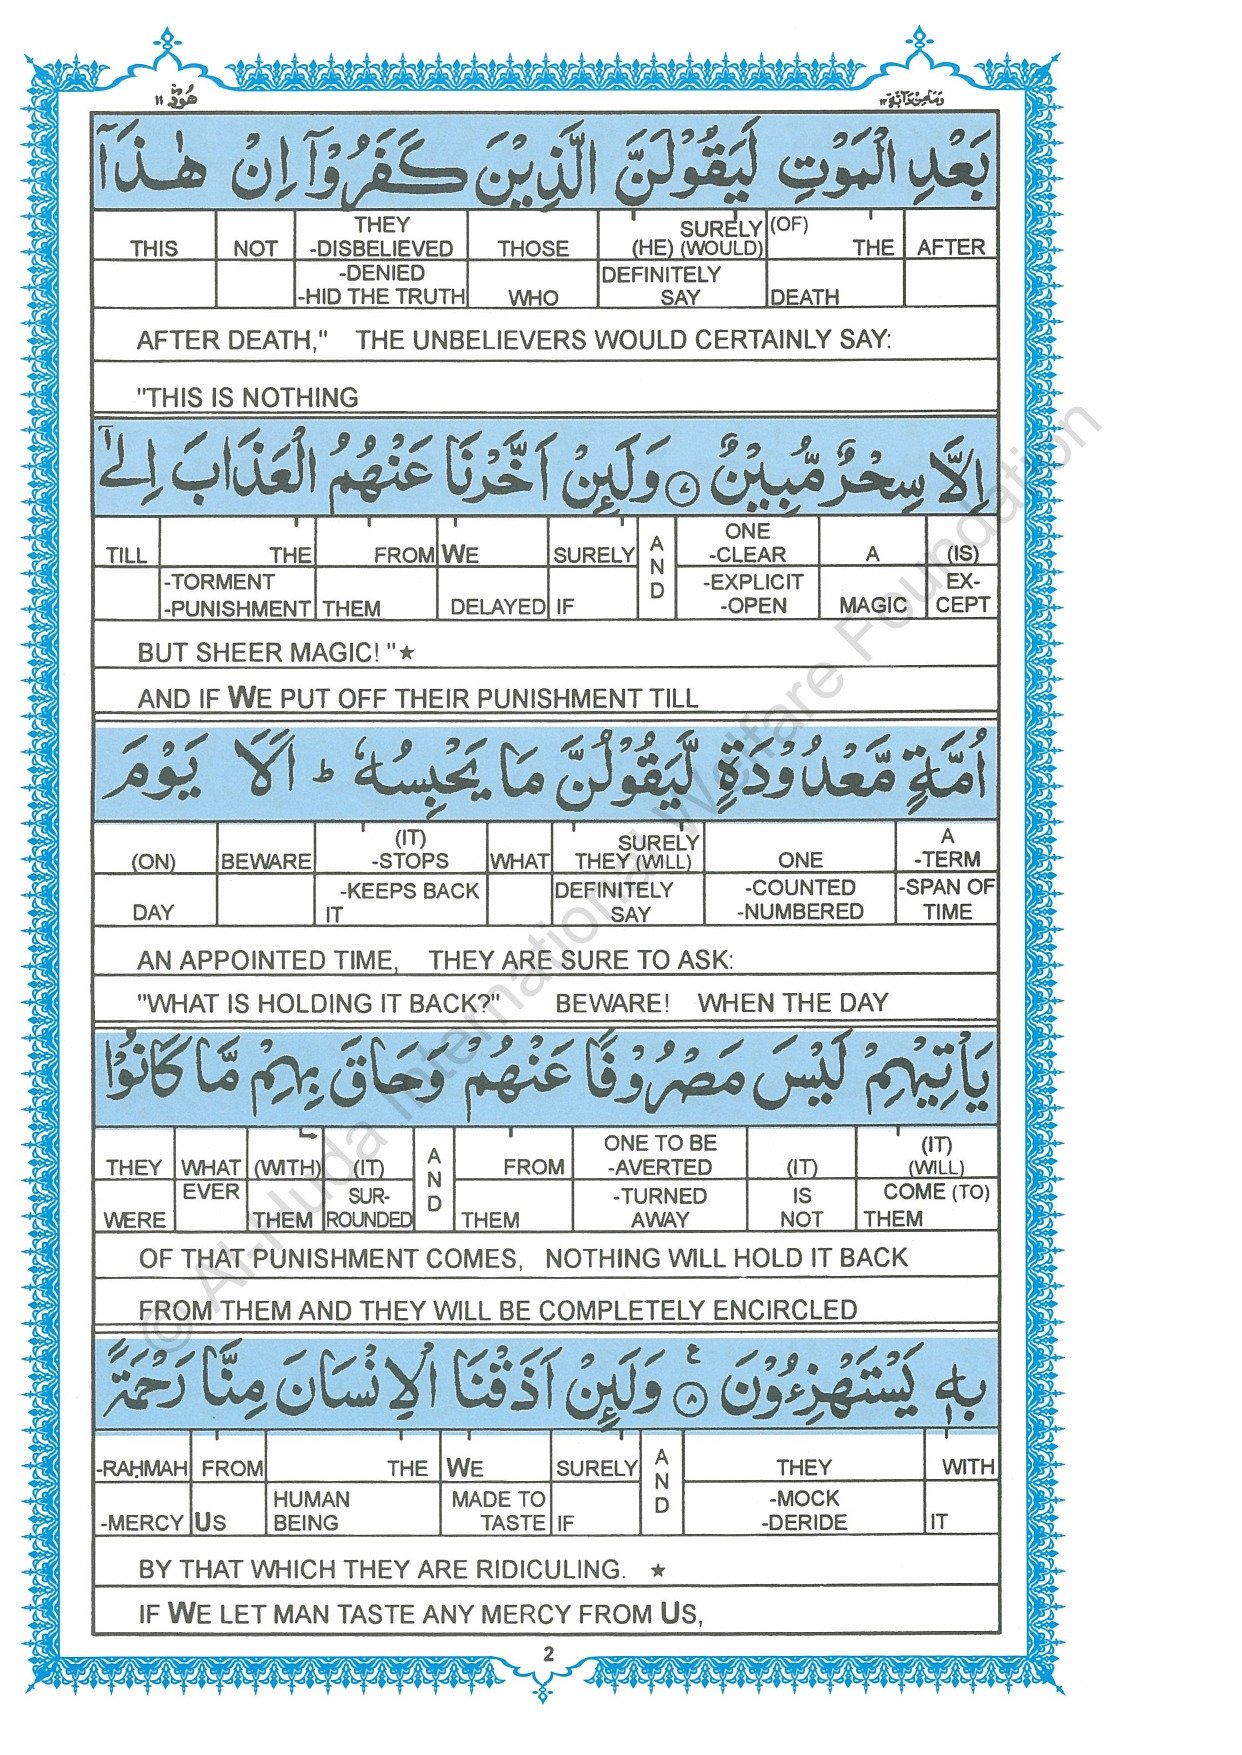 وَمَا مِنْ دَآبَّةٍ ١٢ هُوْد ١١
بَعْدِ الْمَوْتِ لَيَقُوْلَنَّ الَّذِيْنَ كَفَرُوْۤا اِنْ هٰذَاۤ
AFTER THE (OF) SURELY THOSE THEY NOT THIS
(HE) (WOULD) -DISBELIEVED
DEATH DEFINITELY WHO -DENIED
SAY -HID THE TRUTH
AFTER DEATH," THE UNBELIEVERS WOULD CERTAINLY SAY:
"THIS IS NOTHING
اِلَّا سِحْرٌ مُّبِيْنٌ ۝٧ وَلَئِنْ اَخَّرْنَا عَنْهُمُ الْعَذَابَ اِلٰۤى
(IS) A ONE AND SURELY WE FROM THE TILL
-CLEAR
EX- MAGIC -EXPLICIT IF DELAYED THEM -TORMENT
CEPT -OPEN -PUNISHMENT
BUT SHEER MAGIC! "★
AND IF WE PUT OFF THEIR PUNISHMENT TILL
اُمَّةٍ مَّعْدُوْدَةٍ لَّيَقُوْلُنَّ مَا يَحْبِسُهٗ ؕ اَلَا يَوْمَ
A ONE SURELY WHAT (IT) BEWARE (ON)
-TERM THEY (WILL) -STOPS
-SPAN OF -COUNTED DEFINITELY -KEEPS BACK DAY
TIME -NUMBERED SAY IT
AN APPOINTED TIME, THEY ARE SURE TO ASK:
"WHAT IS HOLDING IT BACK?" BEWARE! WHEN THE DAY
يَاْتِيْهِمْ لَيْسَ مَصْرُوْفًا عَنْهُمْ وَحَاقَ بِهِمْ مَّا كَانُوْا
(IT) (IT) ONE TO BE FROM AND (IT) (WITH) WHAT THEY
(WILL) -AVERTED
COME (TO) IS -TURNED THEM SUR- THEM EVER WERE
THEM NOT AWAY ROUNDED
OF THAT PUNISHMENT COMES, NOTHING WILL HOLD IT BACK
FROM THEM AND THEY WILL BE COMPLETELY ENCIRCLED
بِهٖ يَسْتَهْزِءُوْنَ ۝٨ ع وَلَئِنْ اَذَقْنَا الْاِنْسَانَ مِنَّا رَحْمَةً
WITH THEY AND SURELY WE THE FROM -RAḤMAH
IT -MOCK IF MADE TO HUMAN US -MERCY
-DERIDE TASTE BEING
BY THAT WHICH THEY ARE RIDICULING. ★
IF WE LET MAN TASTE ANY MERCY FROM US,
2
© Al-Huda International Welfare Foundation